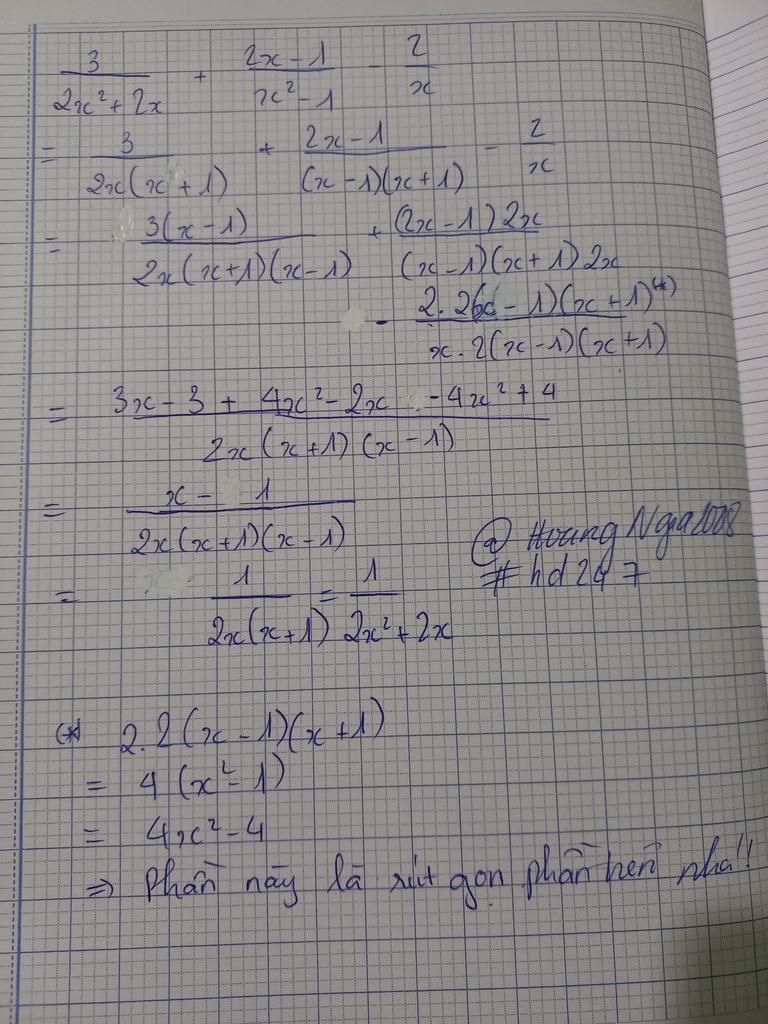 3/(2x² + 2x) + (2x - 1)/(x² - 1) - 2/x
= 3/(2x(x + 1)) + (2x - 1)/((x - 1)(x + 1)) - 2/x
= 3(x - 1)/(2x(x + 1)(x - 1)) + (2x - 1)2x/((x - 1)(x + 1)2x)
- 2.2(x - 1)(x + 1)(*)/(x.2(x - 1)(x + 1))
= (3x - 3 + 4x² - 2x - 4x² + 4)/(2x(x + 1)(x - 1))
= (x - 1)/(2x(x + 1)(x - 1))
= 1/(2x(x + 1)) = 1/(2x² + 2x)
@HoangNga2008
#hd247
(*) 2.2(x - 1)(x + 1)
= 4(x² - 1)
= 4x² - 4
=> Phần này là rút gọn phần trên nha!!